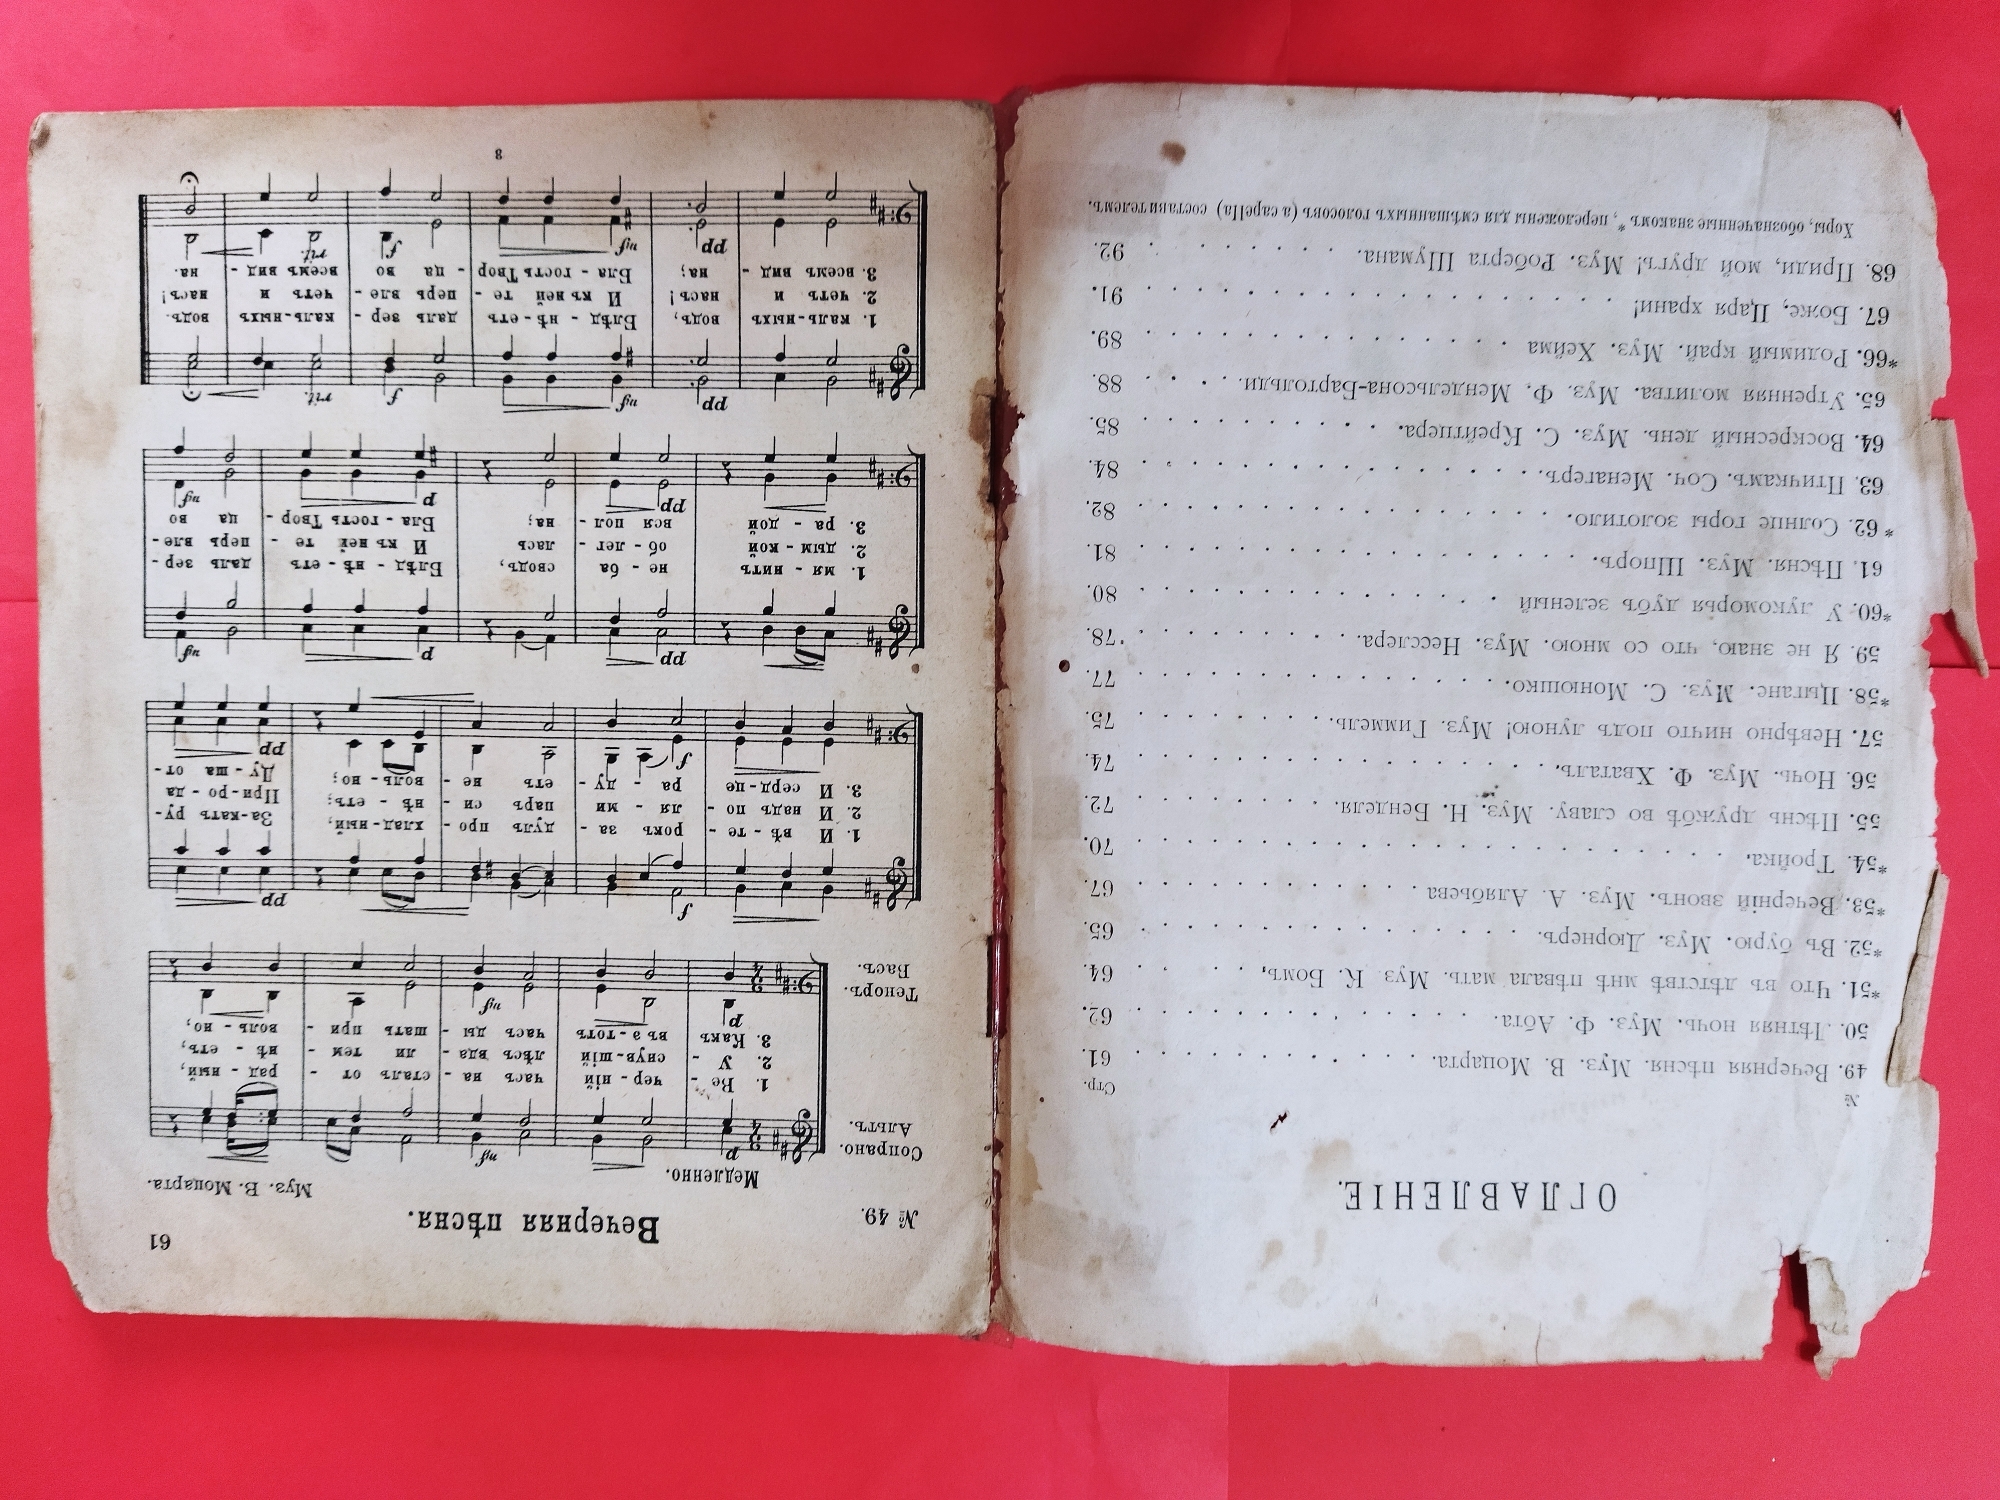 ОГЛАВЛЕНІЕ.
№ Стр.
49. Вечерняя пѣсня. Муз. В. Моцарта. 61.
50. Лѣтняя ночь. Муз. Ф. Абта. 62.
*51. Что въ дѣтствѣ мнѣ пѣвала мать. Муз. К. Бомъ. 64.
*52. Въ бурю. Муз. Дюрнеръ. 65.
*53. Вечерній звонъ. Муз. А. Алябьева 67.
*54. Тройка. 70.
55. Пѣснь дружбѣ во славу. Муз. Н. Бенделя. 72.
56. Ночь. Муз. Ф. Хваталъ. 74.
57. Невѣрно ничто подъ луною! Муз. Гиммель. 75.
*58. Цыгане. Муз. С. Монюшко. 77.
59. Я не знаю, что со мною. Муз. Несслера. 78.
*60. У лукоморья дубъ зеленый 80.
61. Пѣсня. Муз. Шпоръ. 81.
*62. Солнце горы золотило. 82.
63. Птичкамъ. Соч. Менагеръ. 84.
64. Воскресный день. Муз. С. Крейцера. 85.
65. Утренняя молитва. Муз. Ф. Мендельсона-Бартольди. 88.
*66. Родимый край. Муз. Хейма 89.
67. Боже, Царя храни! 91.
68. Приди, мой другъ! Муз. Роберта Шумана. 92.
Хоры, обозначенные знакомъ *, переложены для смѣшанныхъ голосовъ (a capella) составителемъ.
61
№ 49. Вечерняя пѣсня.
Муз. В. Моцарта.
Медленно.
Сопрано.
Альтъ.
p mf
1. Ве - чер - ній часъ на - сталъ от - рад - ный,
2. У - снув - шій лѣсъ вда - ли тем - нѣ - етъ,
3. Какъ въ э - тотъ часъ ды - шать при - воль - но,
p mf
Теноръ.
Басъ.
f pp
1. И вѣ - те - рокъ за - дулъ про - хлад - ный, За - катъ ру -
2. И надъ по - ля - ми паръ си - нѣ - етъ; При - ро - да
3. И серд - це ра - ду - етъ не - воль - но; Ду - ша от -
f pp
pp p mf
1. мя - нитъ не - ба сводъ, Блѣд - нѣ - етъ даль зер -
2. дым - кой об - лег - лась И къ ней те - перь вле -
3. ра - дой вся пол - на; Бла - гость Твор - ца во
pp p mf
pp mf f rit.
1. каль - ныхъ водъ, Блѣд - нѣ - етъ даль зер - каль - ныхъ водъ.
2. четъ и насъ! И къ ней те - перь вле - четъ и насъ!
3. всемъ вид - на; Бла - гость Твор - ца во всемъ вид - на.
pp mf f rit.
8